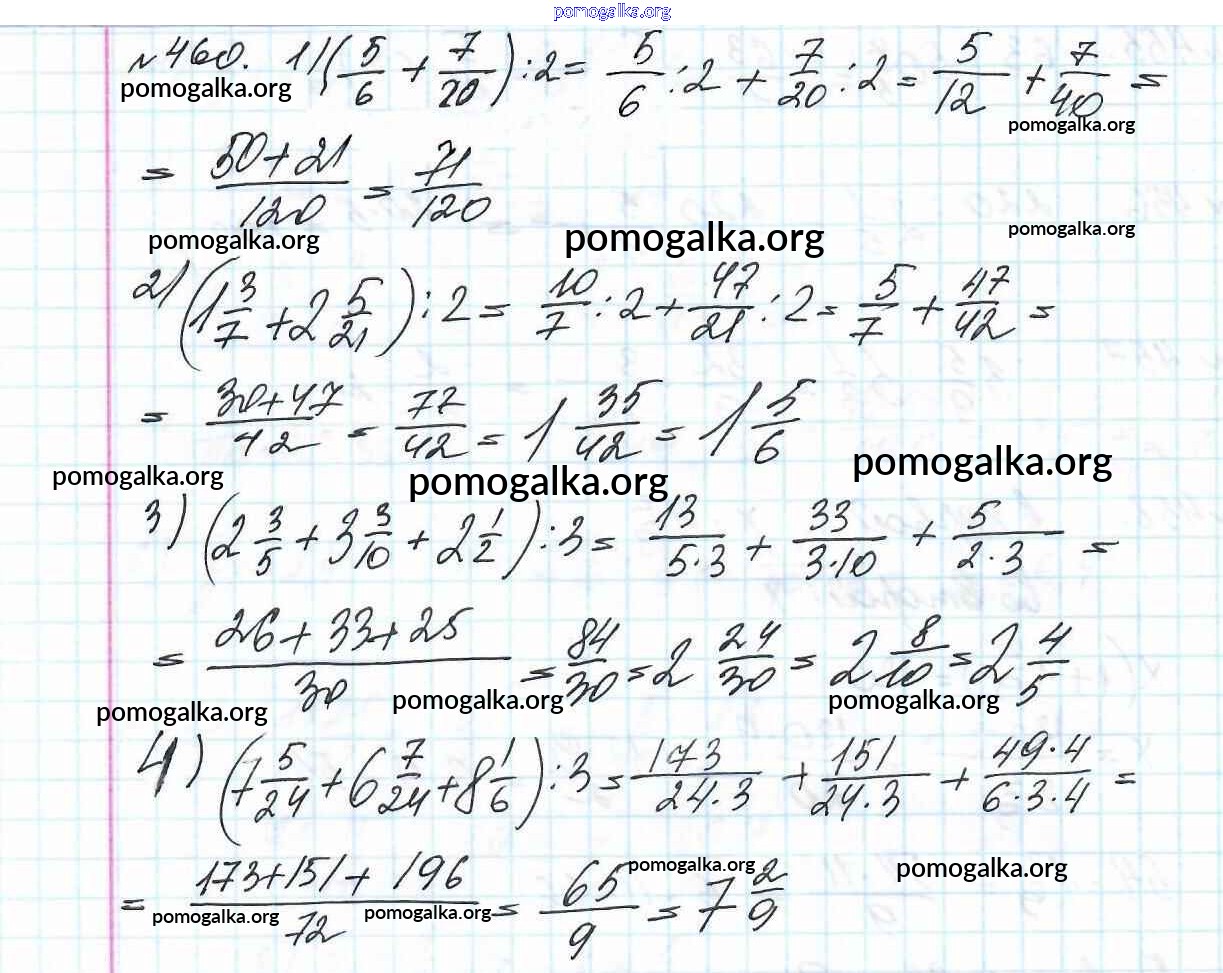 pomogalka.org
№460. 1) (5/6 + 7/20) : 2 = 5/6 : 2 + 7/20 : 2 = 5/12 + 7/40 =
pomogalka.org
pomogalka.org
= (50+21)/120 = 71/120
pomogalka.org pomogalka.org pomogalka.org
2) (1 3/7 + 2 5/21) : 2 = 10/7 : 2 + 47/21 : 2 = 5/7 + 47/42 =
= (30+47)/42 = 77/42 = 1 35/42 = 1 5/6
pomogalka.org pomogalka.org pomogalka.org
3) (2 3/5 + 3 3/10 + 2 1/2) : 3 = 13/(5·3) + 33/(3·10) + 5/(2·3) =
= (26+33+25)/30 = 84/30 = 2 24/30 = 2 8/10 = 2 4/5
pomogalka.org pomogalka.org pomogalka.org
4) (7 5/24 + 6 7/24 + 8 1/6) : 3 = 173/(24·3) + 151/(24·3) + (49·4)/(6·3·4) =
= (173+151+196)/72 = 65/9 = 7 2/9
pomogalka.org pomogalka.org
pomogalka.org pomogalka.org